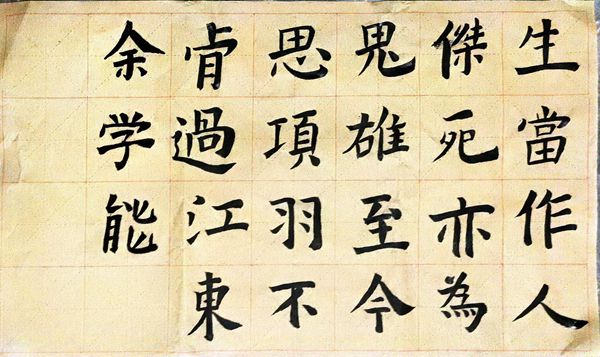 生當作人
傑死亦為
鬼雄至今
思項羽不
肯過江東
余学能